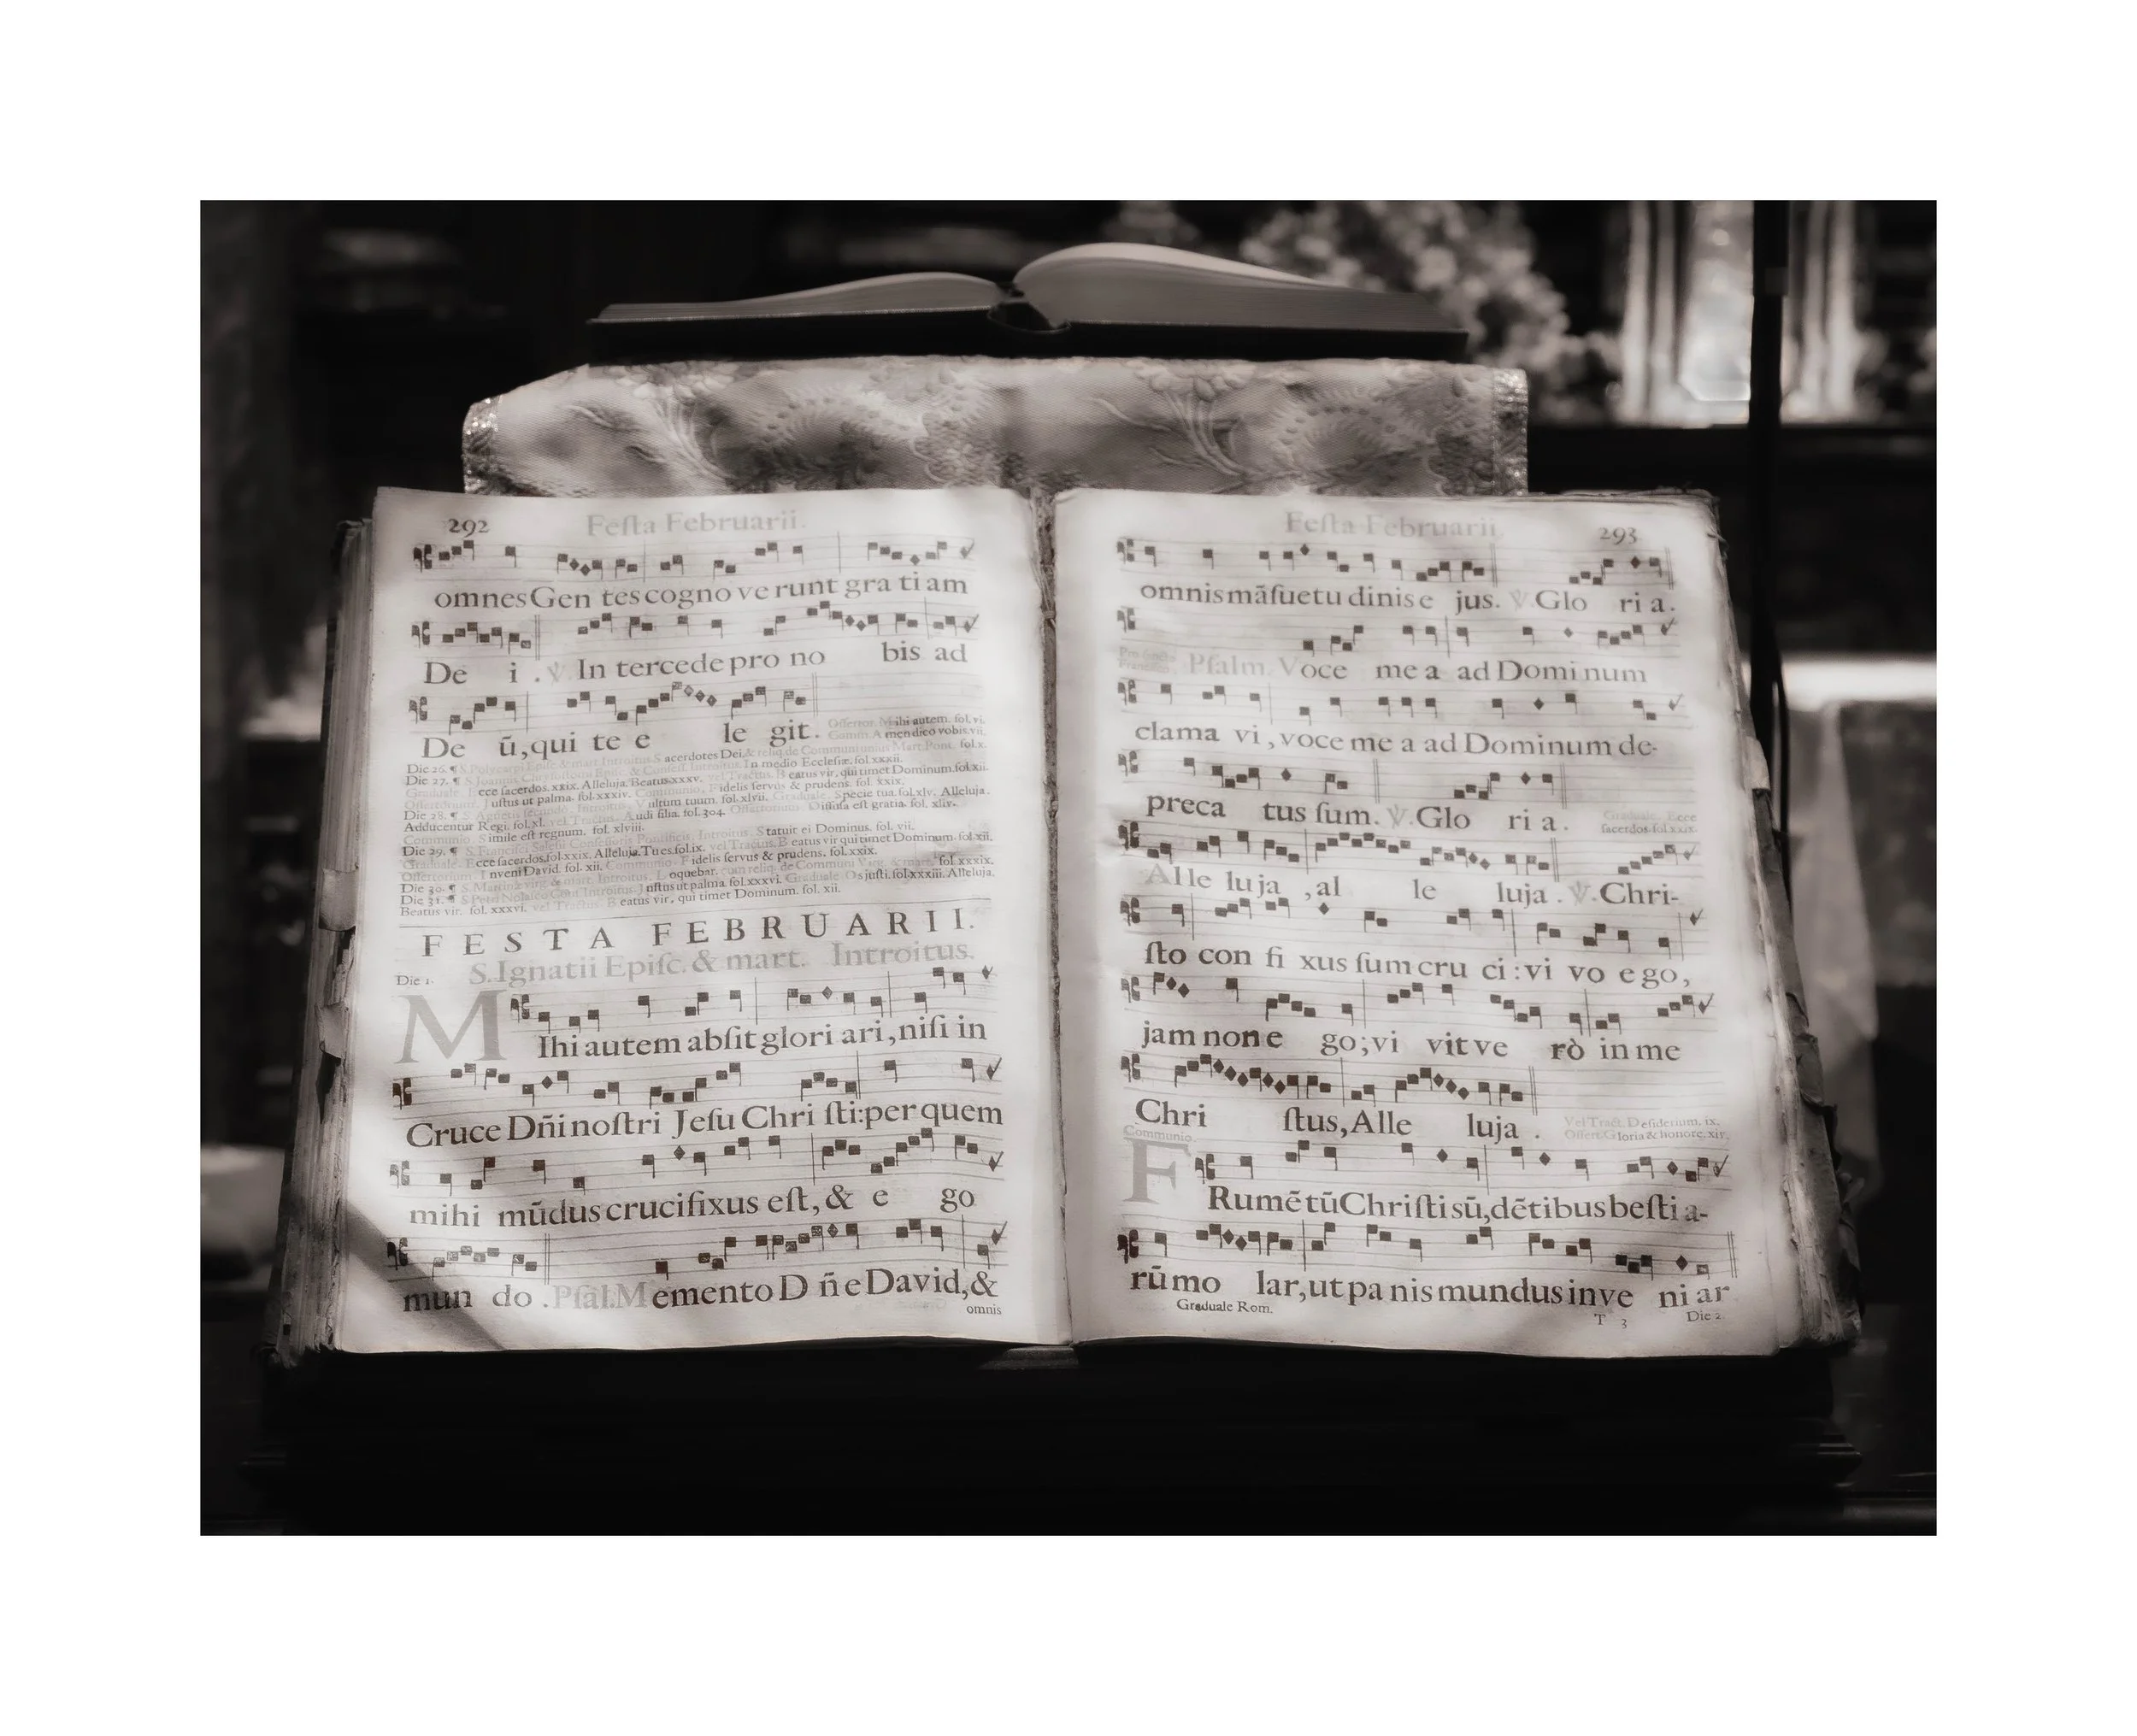 292 Feſta Februarii.
omnes Gen tes cogno ve runt gra ti am
De i . ℣ In tercede pro no bis ad
De ū, qui te e le git.
Offertor. Mihi autem. fol. vi.
Comm. Amen dico vobis. vii.
Die 26. ¶ S. Polycarpi Epiſc. & mart. Introitus. Sacerdotes Dei, & reliq. de Communi unius Mart. Pont. fol. x.
Die 27. ¶ S. Joannis Chryſoſtomi Epiſc. & Confeſſ. Introitus. In medio Eccleſiæ. fol. xxxii.
Graduale. Ecce ſacerdos. xxix. Alleluja. Beatus. xxxv. vel Tractus. Beatus vir, qui timet Dominum. fol. xii.
Offertorium. Juſtus ut palma. fol. xxxiv. Communio. Fidelis ſervus & prudens. fol. xxix.
Die 28. ¶ S. Agnetis ſecundo. Introitus. Vultum tuum. fol. xlvii. Graduale. Specie tua. fol. xlv. Alleluja.
Adducentur Regi. fol. xl. vel Tractus. Audi filia. fol. 304. Offertorium. Diffuſa eſt gratia. fol. xliv.
Communio. Simile eſt regnum. fol. xlviii.
Die 29. ¶ S. Franciſci Saleſii Confeſſoris Pontificis. Introitus. Statuit ei Dominus. fol. vii.
Graduale. Ecce ſacerdos. fol. xxix. Alleluja. Tu es. fol. ix. vel Tractus. Beatus vir qui timet Dominum. fol. xii.
Offertorium. Inveni David. fol. xii. Communio. Fidelis ſervus & prudens. fol. xxix.
Die 30. ¶ S. Martinæ virg. & mart. Introitus. Loquebar. cum reliq. de Communi Virg. & mart. fol. xxxix.
Die 31. ¶ S. Petri Nolaſci Conf. Introitus. Juſtus ut palma. fol. xxxvi. Graduale. Os juſti. fol. xxxiii. Alleluja.
Beatus vir. fol. xxxvi. vel Tractus. Beatus vir, qui timet Dominum. fol. xii.
FESTA FEBRUARII.
Die 1. S. Ignatii Epiſc. & mart. Introitus.
MIhi autem abſit glori ari, niſi in
Cruce Dñi noſtri Jeſu Chri ſti: per quem
mihi mūdus crucifixus eſt, & e go
mun do . Pſal. Memento D ñe David, &
omnis
Feſta Februarii. 293
omnis mãſuetu dinis e jus. ℣. Glo ri a.
Pſalm. Voce me a ad Domi num
clama vi, voce me a ad Dominum de-
preca tus ſum. ℣. Glo ri a.
Graduale. Ecce
ſacerdos. fol. xxix.
Alle luja , al le luja . ℣. Chri-
ſto con fi xus ſum cru ci : vi vo e go,
jam non e go; vi vit ve rò in me
Chri ſtus, Alle luja .
Vel Tract. Deſiderium. ix.
Offert. Gloria & honore. xiv.
Communio.
FRumē tū Chriſti sū, dētibus beſti a-
rū mo lar, ut pa nis mundus inve ni ar
Graduale Rom. T 3 Die 2.